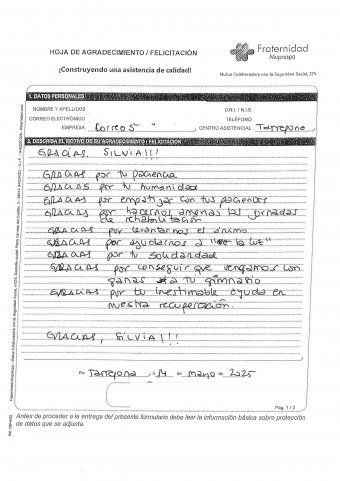 HOJA DE AGRADECIMIENTO / FELICITACIÓN
Fraternidad
Muprespa
¡Construyendo una asistencia de calidad!
Mutua Colaboradora con la Seguridad Social, 275
1. DATOS PERSONALES
NOMBRE Y APELLIDOS
D.N.I. / N.I.E.
CORREO ELECTRÓNICO
TELÉFONO
EMPRESA Correos
CENTRO ASISTENCIAL Tarragona
2. DESCRIBA EL MOTIVO DE SU AGRADECIMIENTO / FELICITACIÓN
GRACIAS, SILVIA!!!
GRACIAS por tu paciencia
GRACIAS por tu humanidad
GRACIAS por empatizar con tus pacientes
GRACIAS por hacernos amenas las jornadas
de rehabilitación
GRACIAS por levantarnos el ánimo
GRACIAS por ayudarnos a "ver la luz"
GRACIAS por tu solidaridad
GRACIAS por conseguir que vengamos con
ganas a tu gimnasio
GRACIAS por tu inestimable ayuda en
nuestra recuperación.
GRACIAS, SILVIA!!!
En Tarragona 14 de mayo de 2025
Pág. 1 / 2
Antes de proceder a la entrega del presente formulario debe leer la información básica sobre protección
de datos que se adjunta.